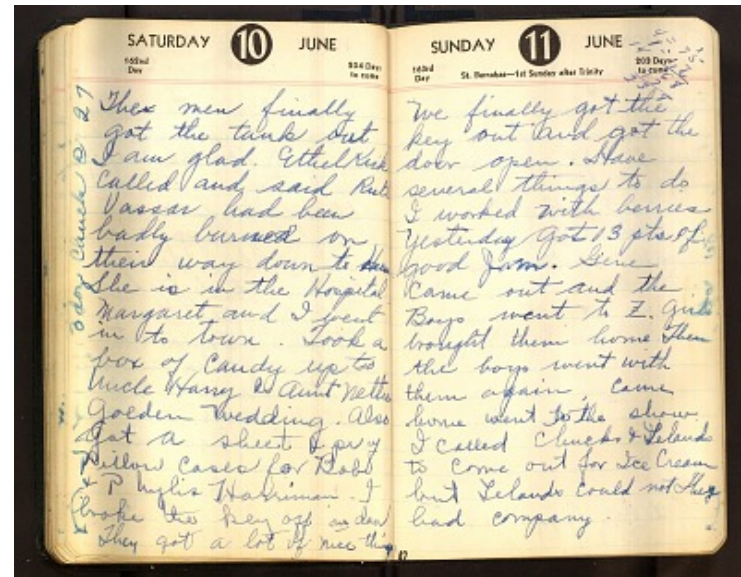 SATURDAY 10 JUNE
162nd Day
204 Days to come
The men finally
got the tank out
I am glad. Ethel
called and said
Vassar had been
badly burned on
their way down to
She is in the Hospital
Margaret and I went
in to town. Took a
box of candy up to
Uncle Harry & Aunt Nettie
Golden Wedding. Also
Got a sheet & pr
Pillow cases for
& Phylis Harriman. I
broke the key off in door
They got a lot of nice thing
SUNDAY 11 JUNE
163rd Day
St. Barnabas—1st Sunday after Trinity
203 Days to come
We finally got the
key out and got the
door open. Have
several things to do
I worked with berries
Yesterday Got 13 pts of
good Jam. Gene
came out and the
Boys went to Z. Girls
bought them home Then
the boys went with
them again. Came
home went to the show.
I called Chucks & Lelands
to come out for Ice Cream
but Lelands could not they
had company.